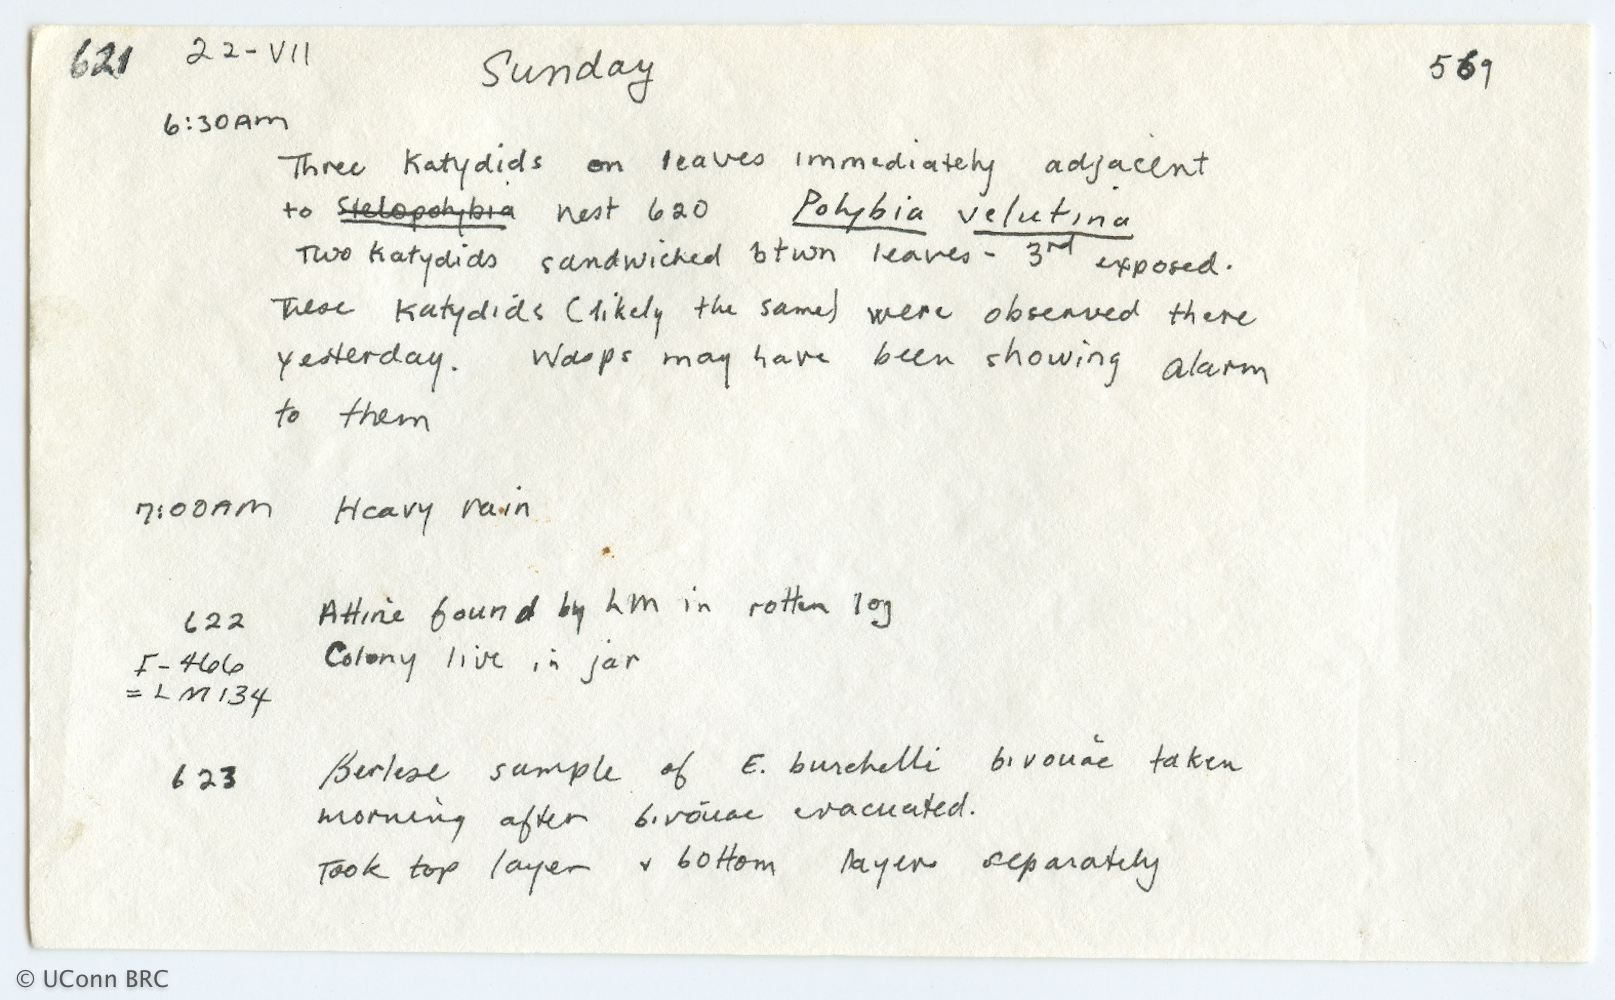 621 22-VII Sunday 569
6:30AM
Three Katydids on leaves immediately adjacent
to Stelopolybia nest 620 Polybia velutina
Two Katydids sandwicked btwn leaves - 3rd exposed.
These Katydids (likely the same) were observed there
yesterday. Wasps may have been showing alarm
to them
7:00AM Heavy rain
622 Attine found by LM in rotten log
I-466 Colony live in jar
= LM134
623 Berlese sample of E. burchelli bivouac taken
morning after bivouac evacuated.
Took top layer & bottom layer separately
© UConn BRC